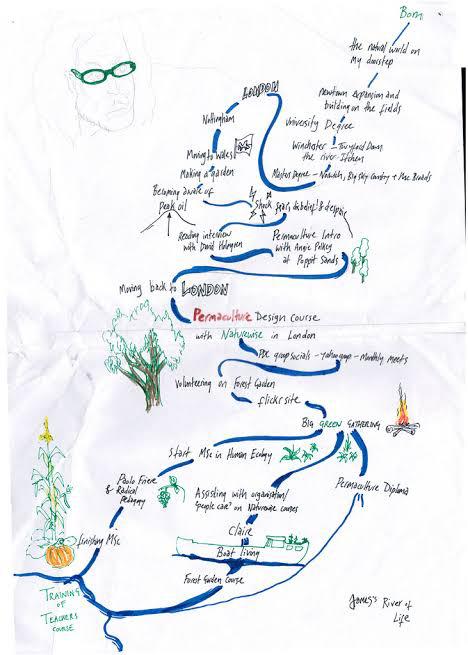 Born
the natural world on
my doorstep
newtown expansion and
building on the fields
University Degree
Winchester - Twyford Down
the river Itchen
Masters Degree - Norwich, Big sky country + the Broads
LONDON
Nottingham
Moving to Wales
Making a garden
Becoming aware of
peak oil
Shock, fear, disbelief & despair
Reading interview
with David Holmgren
Permaculture Intro
with Angie Polkey
at Poppit Sands
Moving back to LONDON
Permaculture Design Course
with Naturewise in London
PDC group socials - yahoo group - Monthly meets
Volunteering on Forest Garden
flickr site
BIG GREEN GATHERING
Start MSc in Human Ecology
Paolo Friere
& Radical
Pedagogy
Assisting with organisation/
'people care' on Naturewise courses
Permaculture Diploma
Claire
Boat living
finishing MSc
Forest Garden Course
TRAINING
OF
TEACHERS
COURSE
James's River of
Life